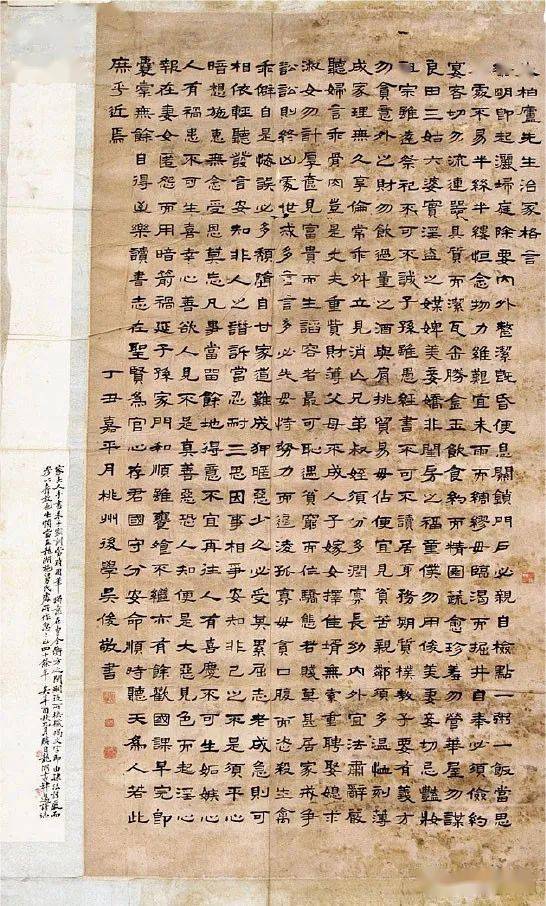 柏廬先生治家格言
黎明即起灑埽庭除要內外整潔旣昏便息關鎖門戶必親自檢點一粥一飯當思
處不易半絲半縷恒念物力維艱宜未雨而綢繆毋臨渴而掘井自奉必須儉約
宴客切勿流連器具質而潔瓦缶勝金玉飲食約而精園蔬愈珍羞勿營華屋勿謀
良田三姑六婆實淫盜之媒婢美妾嬌非閨房之福童僕勿用俊美妻妾切忌豔妝
祖宗雖遠祭祀不可不誠子孫雖愚經書不可不讀居身務期質樸敎子要有義方
勿貪意外之財勿飲過量之酒與肩挑貿易毋佔便宜見貧苦親鄰須多溫恤刻薄
成家理無久享倫常乖舛立見消亡兄弟叔姪須分多潤寡長幼內外宜法肅辭嚴
聽婦言乖骨肉豈是丈夫重貲財薄父母不成人子嫁女擇佳壻無索重聘娶媳求
淑女勿計厚奩見富貴而生諂容者最可恥遇貧窮而作驕態者賤莫甚居家戒爭
訟訟則終凶處世戒多言言多必失毋恃勢力而逼凌孤寡毋貪口腹而恣殺生禽
乖僻自是悔誤必多頹隋自甘家道難成狎暱惡少久必受其累屈志老成急則可
相依輕聽發言安知非人之譖訴當忍耐三思因事相爭安知非己之不是須平心
暗想施惠無念受恩莫忘凡事當留餘地得意不宜再往人有喜慶不可生妬嫉心
人有禍患不可生喜幸心善欲人見不是眞善惡恐人知便是大惡見色而起淫心
報在妻女匿怨而用暗箭禍延子孫家門和順雖饔飧不繼亦有餘歡國課早完卽
囊橐無餘自得至樂讀書志在聖賢爲官心存君國守分安命順時聽天爲人若此
庶乎近焉
丁丑嘉平月桃州後學吳俊敬書
家大人手書朱子家訓